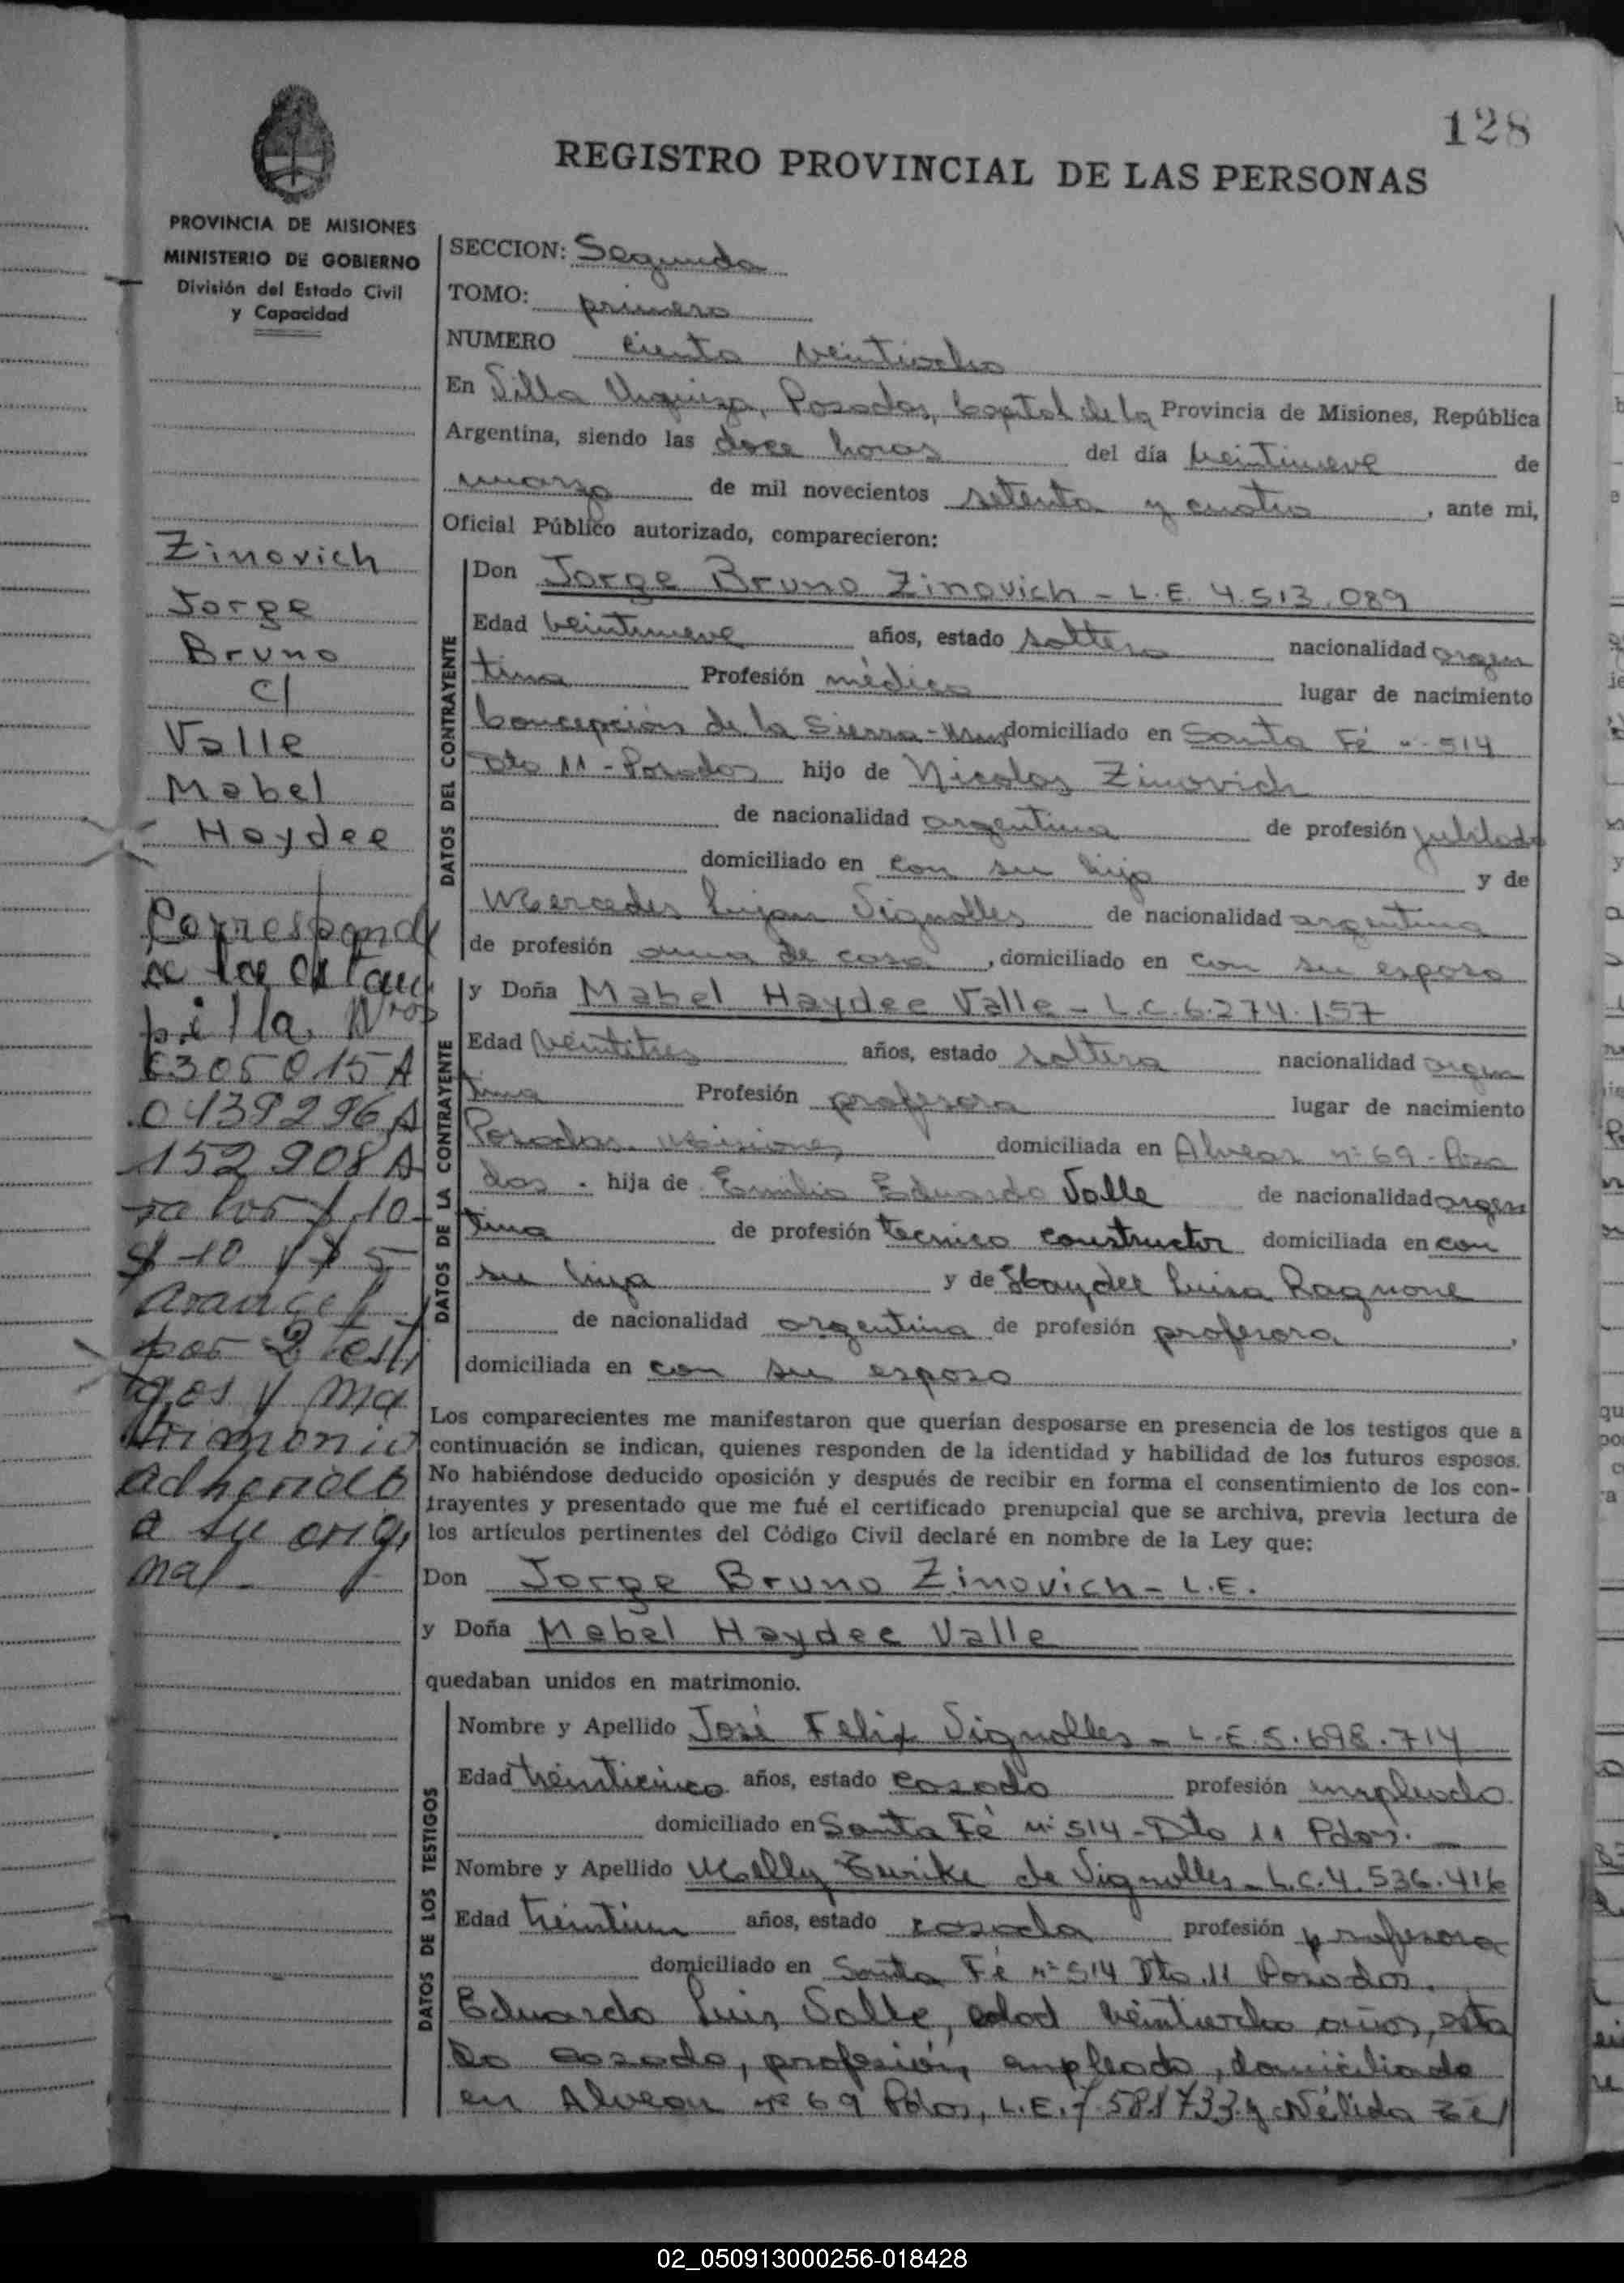 128
REGISTRO PROVINCIAL DE LAS PERSONAS
PROVINCIA DE MISIONES
MINISTERIO DE GOBIERNO
División del Estado Civil
y Capacidad
Zinovich
Jorge
Bruno
c/
Valle
Mabel
Haydee
Corresponde
a la estam
pilla. Nros
0305015A
0439296A
152908A
$ 10 y $ 5
arancel
por 2 testi
gos y ma
trimonio
adherido
a su origi
nal.
SECCION: Segunda
TOMO: primero
NUMERO ciento veintiocho
En Villa Urquiza, Posadas, Capital de la Provincia de Misiones, República
Argentina, siendo las doce horas del día veintinueve de
marzo de mil novecientos setenta y cuatro, ante mi,
Oficial Público autorizado, comparecieron:
DATOS DEL CONTRAYENTE
Don Jorge Bruno Zinovich - L.E. 4.513.089
Edad veintinueve años, estado soltero nacionalidad argen
tina Profesión médico lugar de nacimiento
Concepción de la Sierra - Mnes domiciliado en Santa Fé n° 514
Dto 11 - Posadas hijo de Nicolas Zinovich
de nacionalidad argentina de profesión jubilado
domiciliado en con su hijo y de
Mercedes Lujan Vignolles de nacionalidad argentina
de profesión ama de casa, domiciliado en con su esposo
DATOS DE LA CONTRAYENTE
y Doña Mabel Haydee Valle - L.C. 6.274.157
Edad veintitres años, estado soltera nacionalidad argen
tina Profesión profesora lugar de nacimiento
Posadas. Misiones domiciliada en Alvear n° 69 - Posa
das. hija de Emilio Eduardo Valle de nacionalidad argen
tina de profesión tecnico constructor domiciliada en con
su hija y de Haydee Luisa Ragnone
de nacionalidad argentina de profesión profesora,
domiciliada en con su esposo
Los comparecientes me manifestaron que querían desposarse en presencia de los testigos que a
continuación se indican, quienes responden de la identidad y habilidad de los futuros esposos.
No habiéndose deducido oposición y después de recibir en forma el consentimiento de los con-
trayentes y presentado que me fué el certificado prenupcial que se archiva, previa lectura de
los artículos pertinentes del Código Civil declaré en nombre de la Ley que:
Don Jorge Bruno Zinovich - L.E.
y Doña Mabel Haydee Valle
quedaban unidos en matrimonio.
DATOS DE LOS TESTIGOS
Nombre y Apellido José Felix Vignolles - L.E. 5.698.714
Edad treinticinco años, estado casado profesión empleado
domiciliado en Santa Fé n° 514 - Dto 11 Pdas.
Nombre y Apellido Melly de Vignolles - L.C. 4.536.416
Edad treintiun años, estado casada profesión profesora
domiciliado en Santa Fé n° 514 Dto 11 Posadas.
Eduardo Luis Valle, edad veintiocho años, esta
do casado, profesión, empleado, domiciliado
en Alvear n° 69 Pdas, L.E. 7.581733 y Nélida
02_050913000256-018428